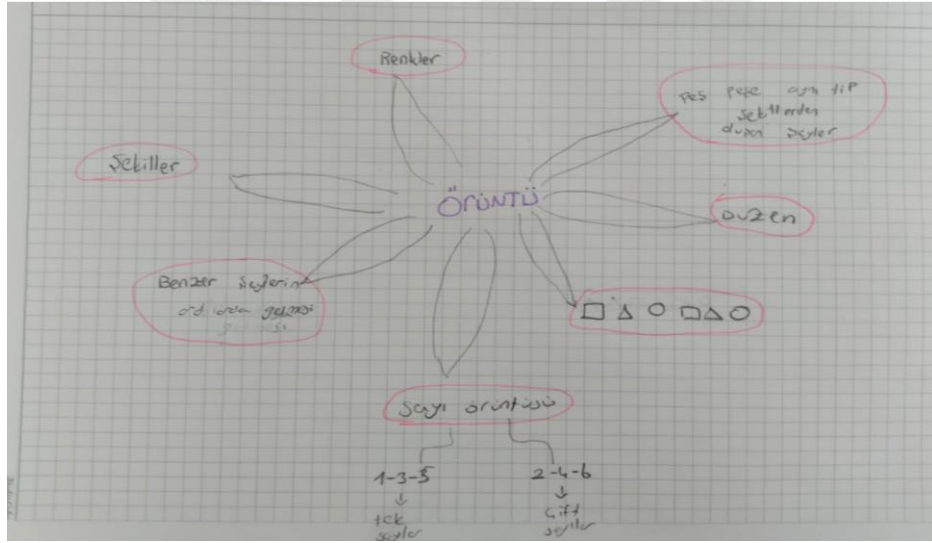 Renkler
Peş peşe aynı tip
şekillerden
şeyler
Şekiller
ÖRÜNTÜ
Düzen
Benzer Şeylerin
ard arda gelmesi
Sayı örüntüsü
1-3-5
2-4-6
tek
sayılar
Çift
sayılar